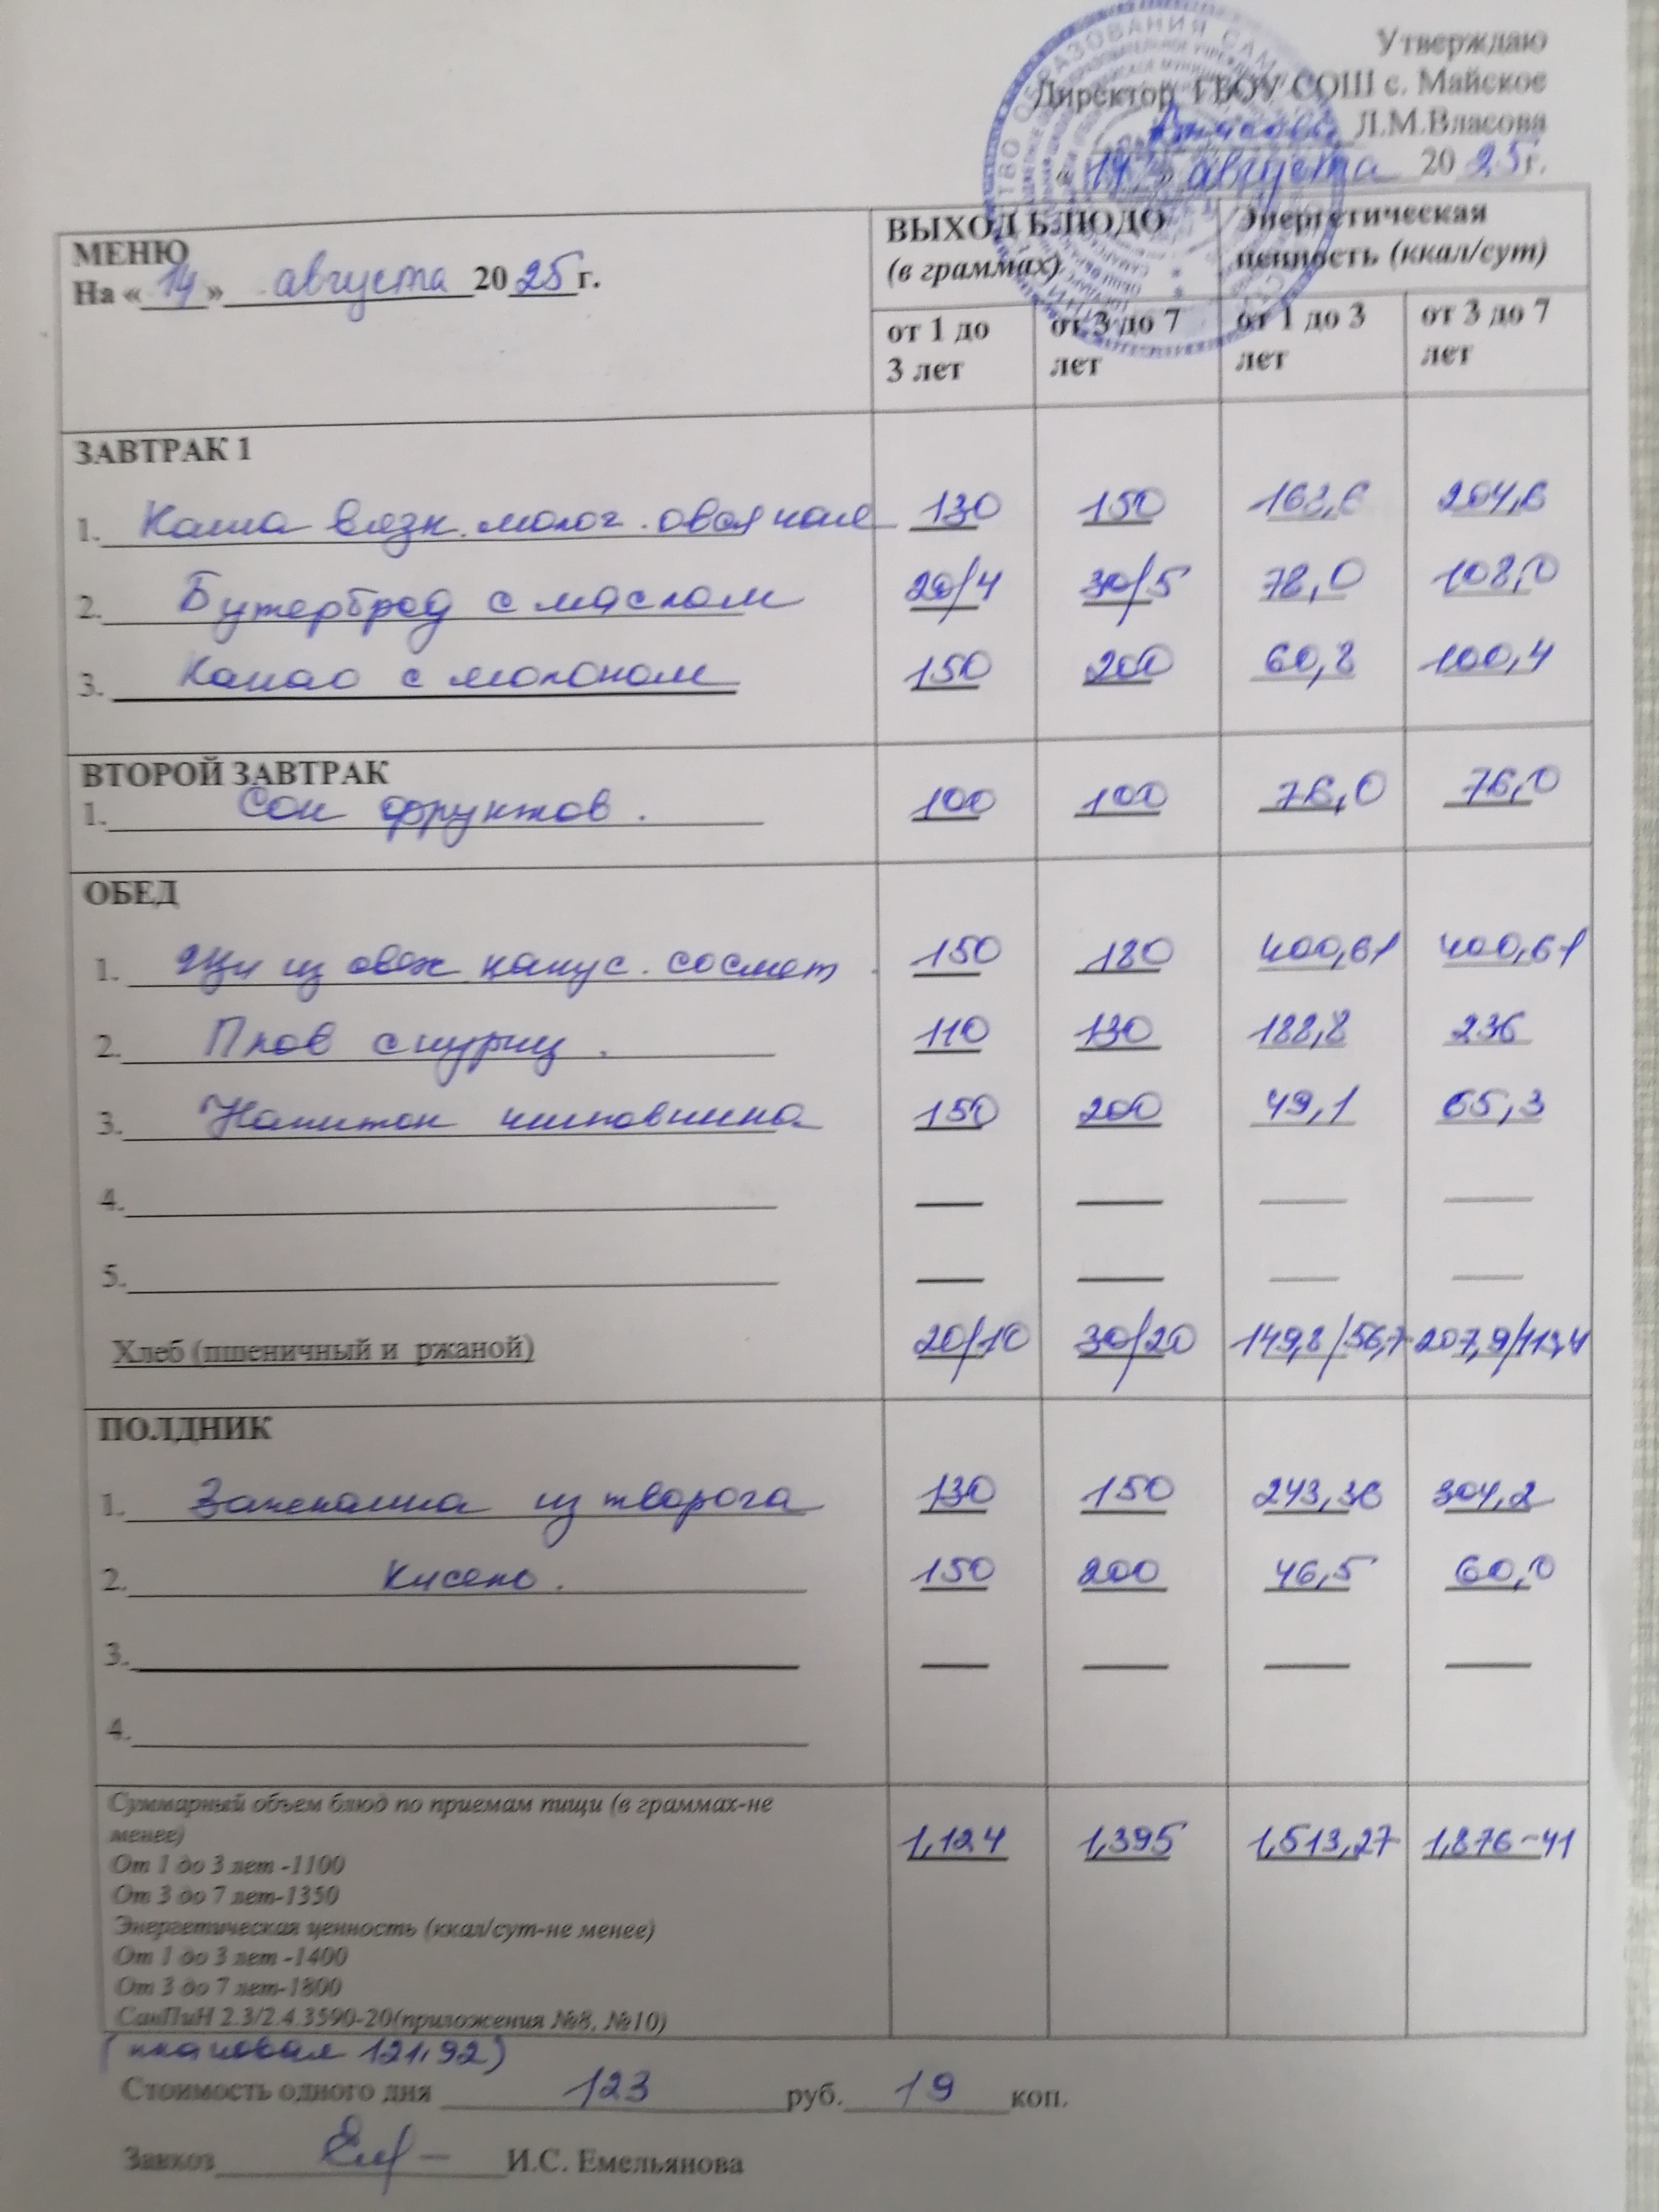 Утверждаю
Директор ГБОУ СОШ с. Майское
Л.М.Власова
«14» августа 2025г.
МЕНЮ
На «14» августа 2025г.
ВЫХОД БЛЮДО
(в граммах)
Энергетическая
ценность (ккал/сут)
от 1 до
3 лет
от 3 до 7
лет
от 1 до 3
лет
от 3 до 7
лет
ЗАВТРАК 1
1. Каша вязк. молоч. овсяная 130 150 163,6 204,6
2. Бутерброд с маслом 20/4 30/5 78,0 108,0
3. Какао с молоком 150 200 60,8 100,4
ВТОРОЙ ЗАВТРАК
1. Сок фруктов. 100 100 76,0 76,0
ОБЕД
1. Щи из свеж капус. со смет. 150 180 400,61 400,61
2. Плов с куриц. 110 130 188,8 236
3. Напиток шиповника 150 200 49,1 65,3
4.
5.
Хлеб (пшеничный и ржаной) 20/10 30/20 149,8/56,7 207,9/113,4
ПОЛДНИК
1. Запеканка из творога 130 150 243,36 304,2
2. Кисель. 150 200 46,5 60,0
3.
4.
Суммарный объем блюд по приемам пищи (в граммах-не
менее) 1,124 1,395 1,513,27 1,876-41
От 1 до 3 лет -1100
От 3 до 7 лет-1350
Энергетическая ценность (ккал/сут-не менее)
От 1 до 3 лет -1400
От 3 до 7 лет-1800
СанПиН 2.3/2.4.3590-20(приложения №8, №10)
(плановая 121,92)
Стоимость одного дня 123 руб. 19 коп.
Завхоз И.С. Емельянова